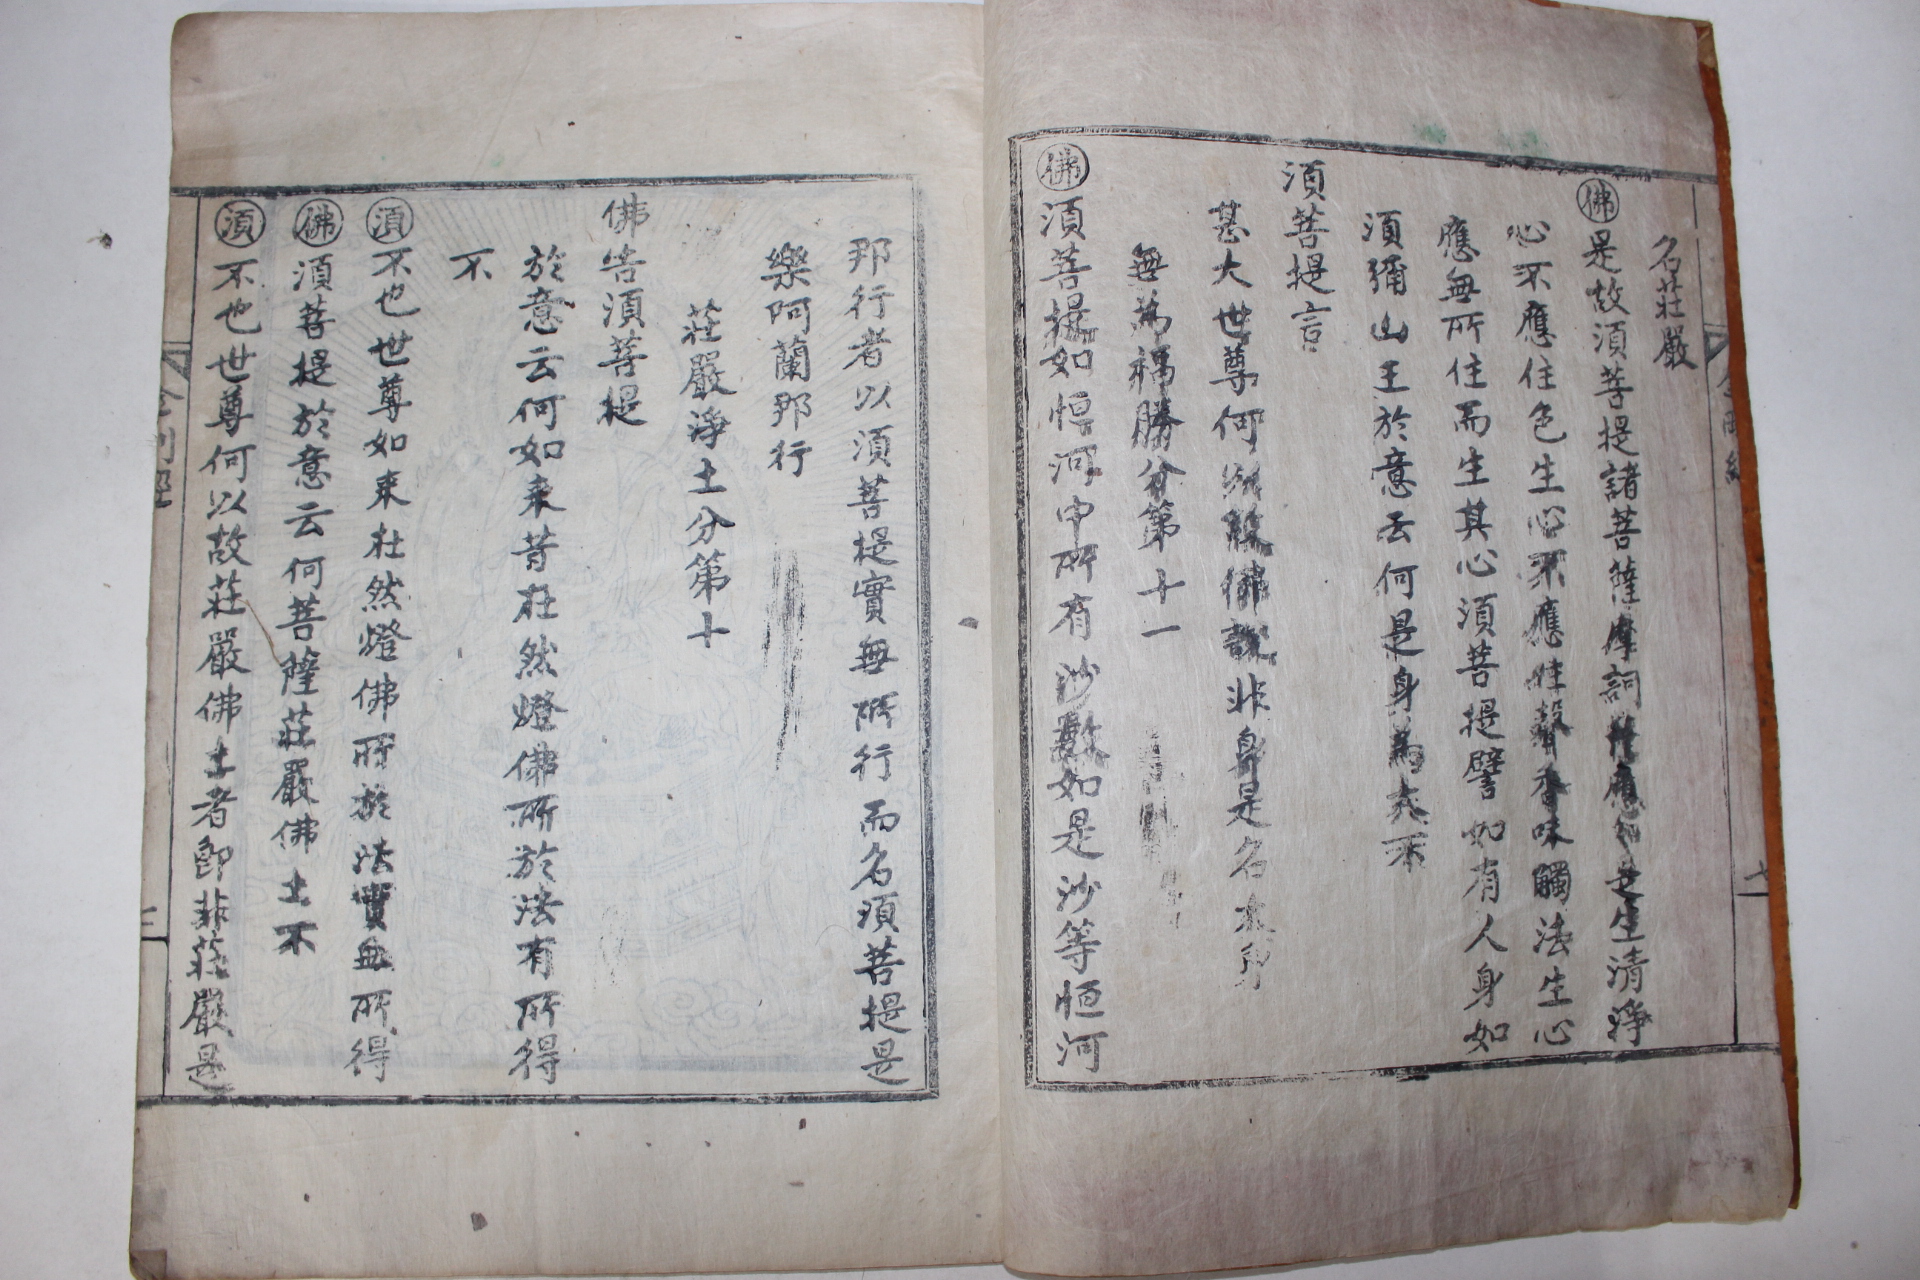 名莊嚴
佛是故須菩提諸菩薩摩訶薩應如是生清淨
心不應住色生心不應住聲香味觸法生心
應無所住而生其心須菩提譬如有人身如
須彌山王於意云何是身為大不
須菩提言
甚大世尊何以故佛說非身是名大身
無為福勝分第十一
佛須菩提如恒河中所有沙數如是沙等恒河
那行者以須菩提實無所行而名須菩提是
樂阿蘭那行
莊嚴淨土分第十
佛告須菩提
於意云何如来昔在然燈佛所於法有所得
不
須不也世尊如来在然燈佛所於法實無所得
佛須菩提於意云何菩薩莊嚴佛土不
須不也世尊何以故莊嚴佛土者即非莊嚴是